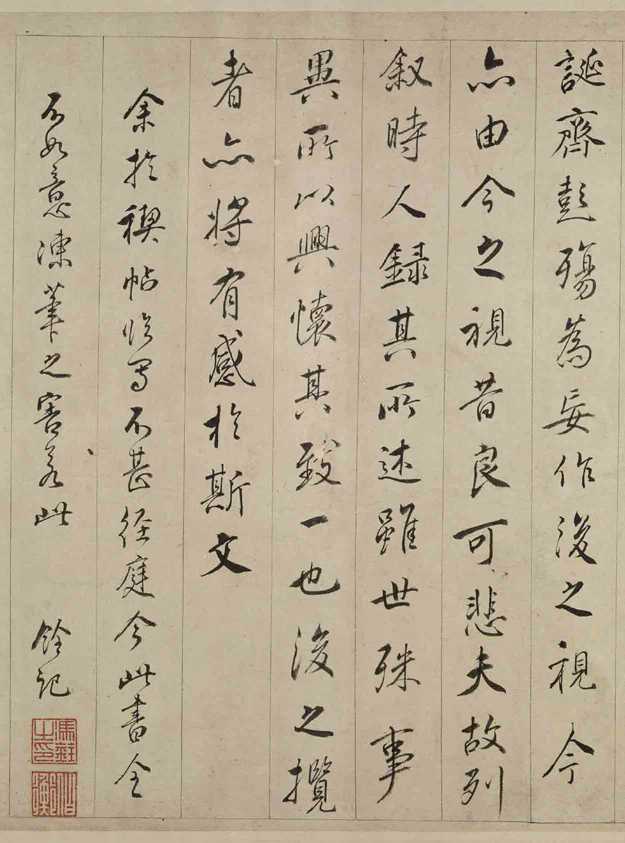 誕齊彭殤為妄作後之視今
亦由今之視昔良可悲夫故列
叙時人録其所述雖世殊事
異所以興懷其致一也後之攬
者亦将有感於斯文
余於禊帖臨寫不甚徑庭今此書全
不如意凍筆之害若此
銓記
馮銓之印